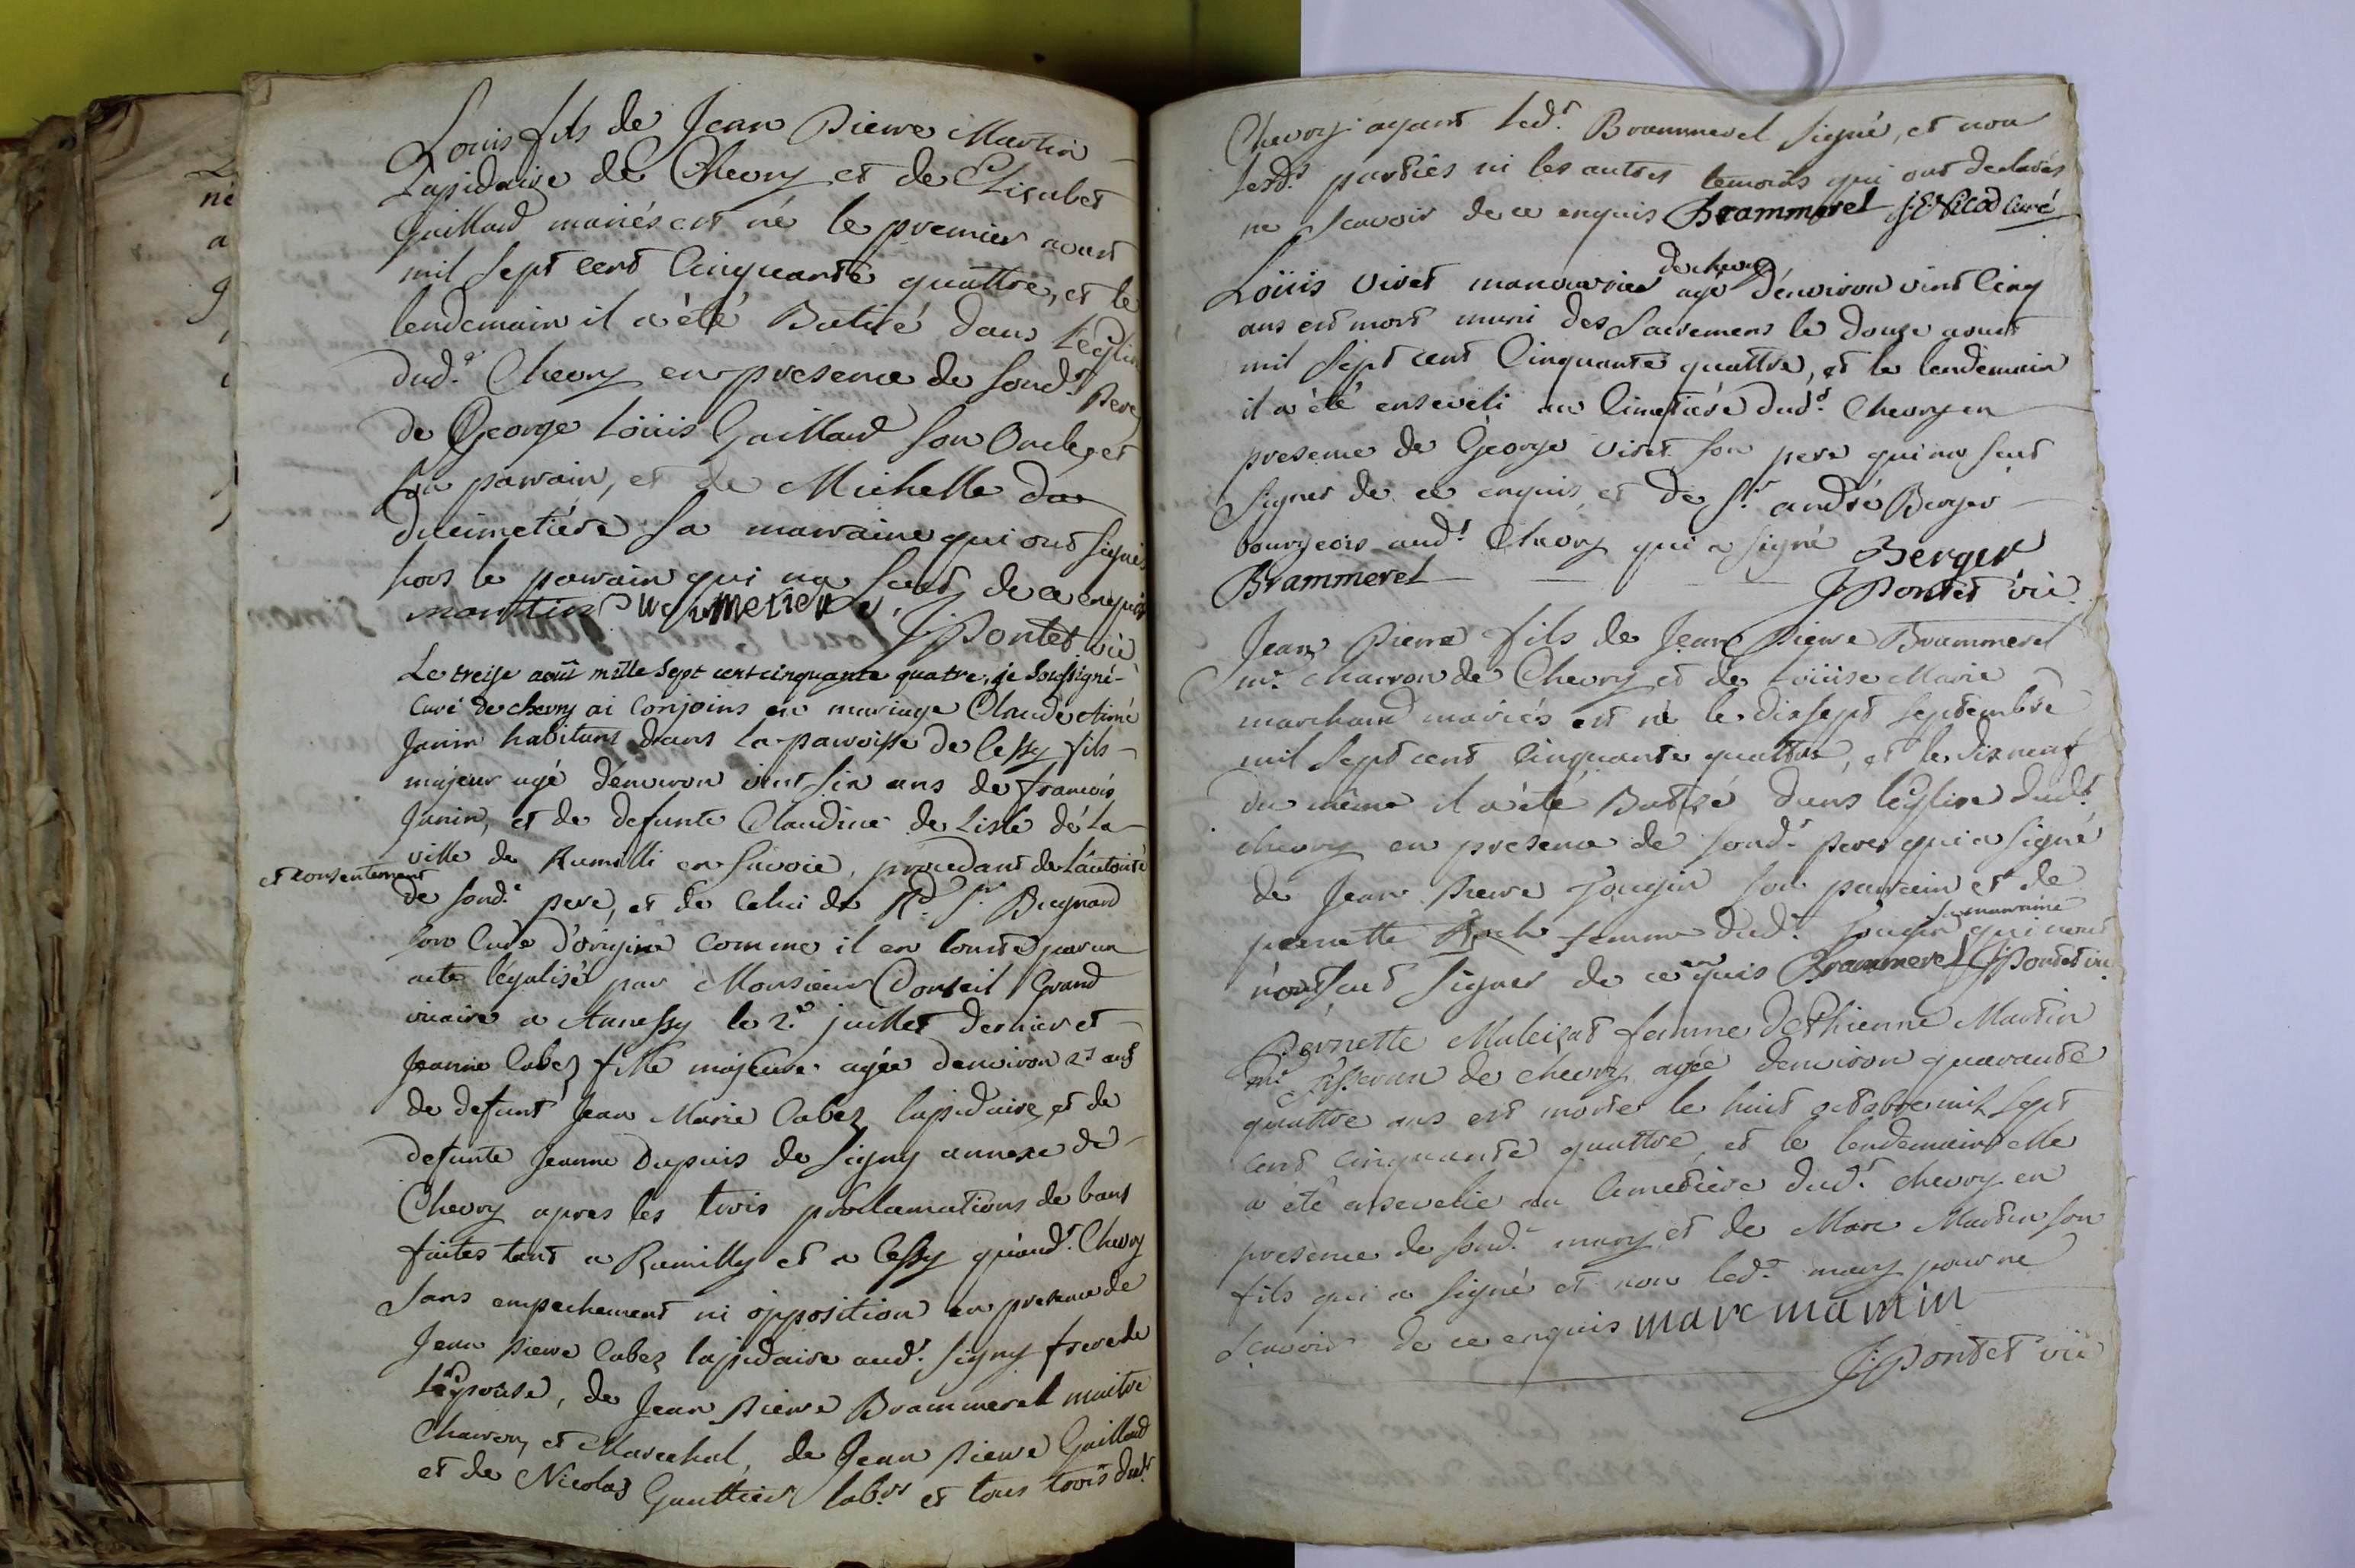 Louis fils de Jean Pierre Martin
Lapidaire de Chevry et de Elisabet
Gaillard mariés est né le premier aoust
mil sept cent Cinquante quattre, et le
lendemain il a été Batisé dans l'Eglise
dud.t Chevry en presence de sond.t Pere
de George Loüis Gaillard son Oncle, et
son parrain, et de Michelle
Ducimetiére sa marraine qui ont signés
hors le parain qui ne scait de ce enquis
martin Ducimetiere, J Pontet vic
Le treise août mille sept cent cinquante quatre, je soussigné
Curé de chevry ai Conjoins en mariage Claude Aimé
Janin habitant dans la paroisse de Cessy fils
majeur agé d'environ vint six ans de francois
Janin, et de defunte Claudine de Lisle de la
ville de Rumilli en savoie, procedant de l'autorité
et consentement
de sond.t pere, et de celui de R.d S.r
son Curé d'origine comme il en conste par un
acte légalisé par Monsieur Conseil Grand
vicaire a Annessy le 2.e juillet dernier et
Jeanne Cabez fille majeure agée d'environ 27 ans
de defunt Jean Marie Cabez lapidaire, et de
defunte Jeanne Dupuis de Signy annexe de
Chevry apres les trois proclamations de bans
faites tant a Rumilly et a Cessy qu'aud.t Chevry
sans empechement ni opposition en presence de
Jean Pierre Cabez lapidaire aud.t Signy frere de
l'Epouse, de Jean Pierre Brammerel maitre
Charron, et Marechal, de Jean Pierre Gaillard
et de Nicolas Gauthier lab.rs et tous trois dud.t
Chevry ayant led.t Brammerel signé, et non
lesd.s parties ni les autres temoins qui ont declarés
ne scavoir de ce enquis Brammerel J.E. Nicod Curé
de chevry
Loüis Viret manouvrier agé d'environ vint Cinq
ans est mort muni des Sacremens le douze aoust
mil sept cent Cinquante quattre, et le lendemain
il a été enseveli au Cimetiére dud.t Chevry en
presence de George Viret son pere qui ne scait
signer de ce enquis et de S.r andré Berger
bourgeois aud.t Chevry qui a signé Berger
Brammerel J Pontet vic
Jean Pierre fils de Jean Pierre Brammerel
m.e charron de Chevry et de Loüise Marie
marchand mariés est né le dissept septembre
mil sept cent Cinquante quattre, et le dixneuf
du même il a été Batisé dans l'Eglise dud.t
chevry en presence de sond.t pere qui a signé
de Jean Pierre Jougin son parrain et de
sa marraine
pernette femme dud.t Jougin qui
n'ont scut signer de ce enquis Brammerel J Pontet vic
Pernette Maleizat femme d'Ethienne Martin
m.e Tisseran de chevry agée d'environ quarante
quattre ans est morte le huit octobre mil sept
cent cinquante quattre, et le lendemain elle
a été ensevelie au Cimetiére dud.t chevry en
presence de sond.t mary et de Marc Martin son
fils qui a signé et non led.t mary pour ne
scavoir de ce enquis marc martin
J Pontet vic